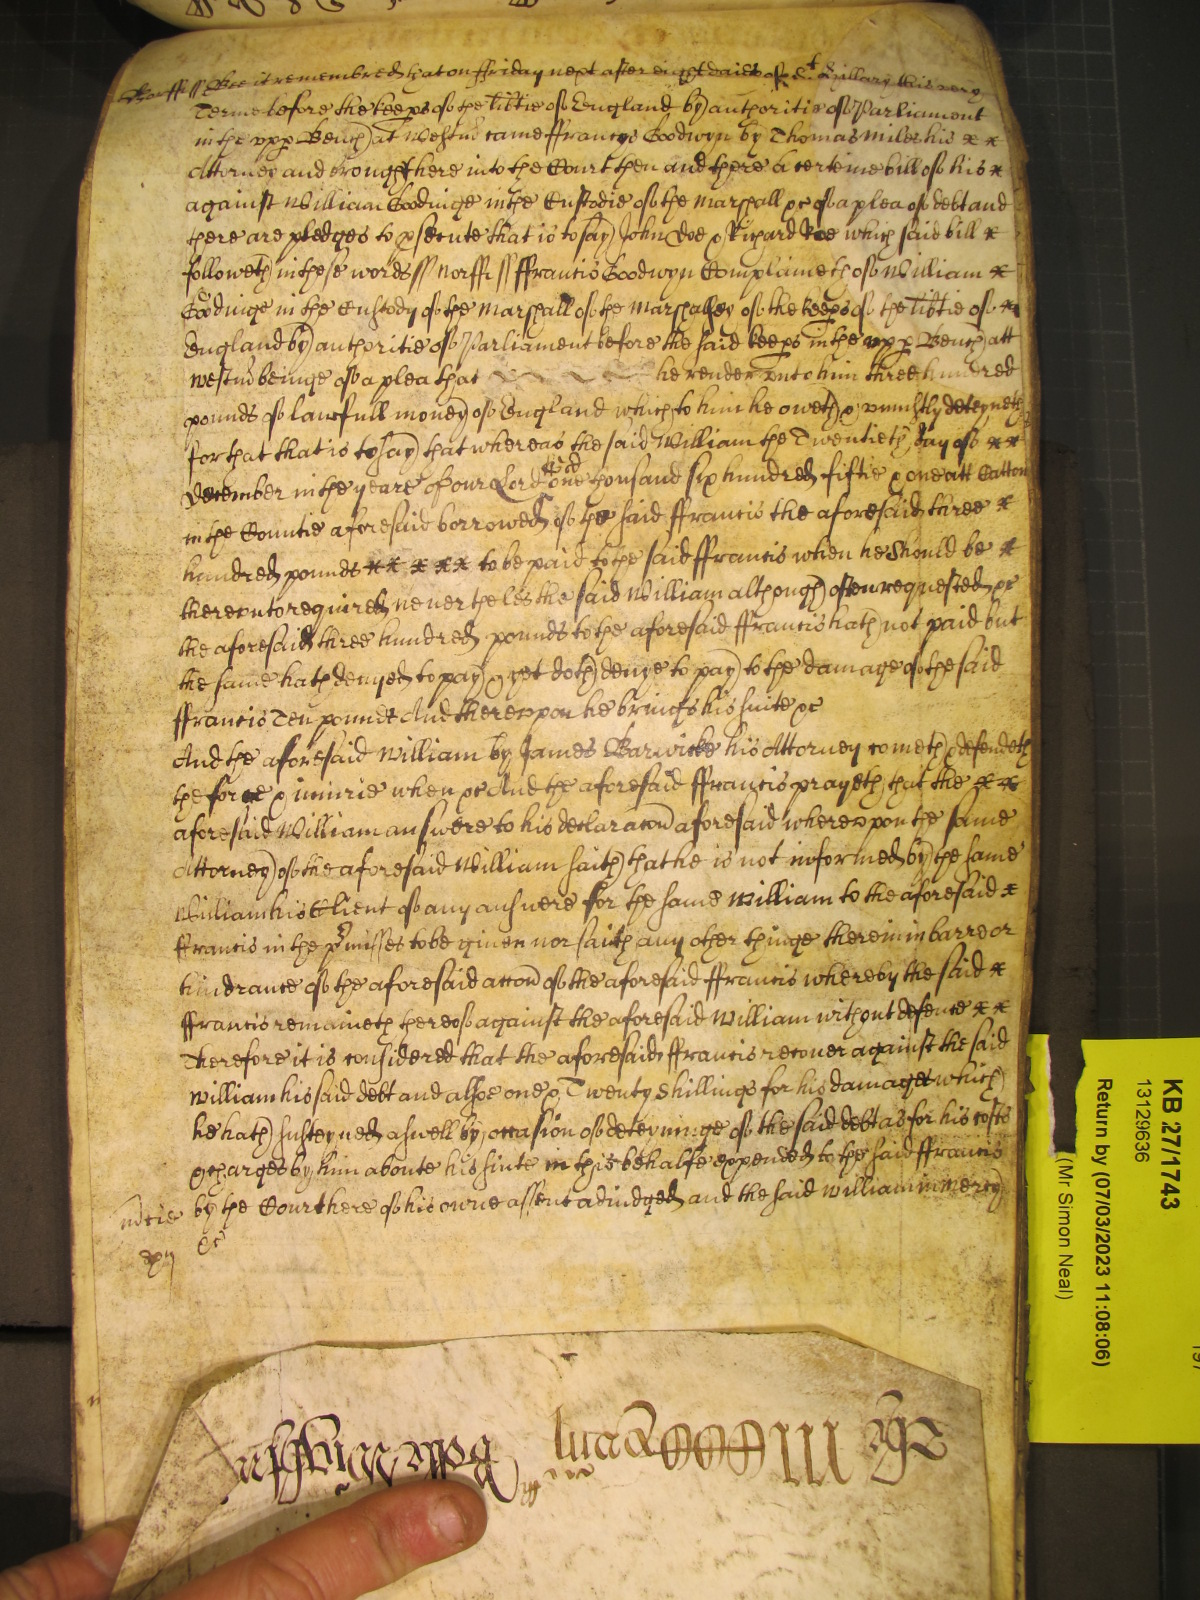 Norff ss Bee it remembred that on ffriday next after eight daies of St Hillary this very
Terme before the keeps of the libtie of England by authoritie of Parliament
in the upp Bench at Westm came ffrancys Goodwyn by Thomas Miles his
Attorney and brought here into the Court then and there a certeine bill of his
against William Goodinge in the Custodie of the marshall &c of a plea of debt and
there are pledges to psecute that is to say John Doe & Richard Roe which said bill
followeth in these words ss Norff ss ffrancis Goodwyn Complaineth of William
Goodinge in the Custody of the marshall of the marshalsey of the keeps of the libtie of
England by authoritie of Parliament before the said keeps in the upp Bench att
westm beinge of a plea that he render unto him three hundred
pounds of lawfull money of England which to him he oweth & uniustly deteyneth
for that that is to say that whereas the said William the Twentieth day of
December in the yeare of our Lord one thousand six hundred fiftie & one att Catton
in the Countie aforesaid borrowed of the said ffrancis the aforesaid three
hundred pounds to be paid to the said ffrancis when he should be
thereunto required neverthelesse the said William although often requested &c
the aforesaid three hundred pounds to the aforesaid ffrancis hath not paid but
the same hath denyed to pay & yet doth denye to pay to the damage of the said
ffrancis Ten pounds And thereupon he brings his suite &c
And the aforesaid William by James Barwicke his Attorney cometh & defendeth
the force & iniurie when &c And the aforesaid ffrancis prayeth that the
aforesaid William answere to his declaracon aforesaid whereupon the same
Attorney of the aforesaid William saith that he is not informed by the same
William his Client of any answere for the same William to the aforesaid
ffrancis in the pmisses to be given nor saith any other thinge therein in barre or
hindrance of the aforesaid accon of the aforesaid ffrancis whereby the said
ffrancis remaineth thereof against the aforesaid William without defence
Therefore it is considered that the aforesaid ffrancis recover against the said
William his said debt and alsoe one & Twenty shillings for his damages which
he hath susteyned aswell by occasion of deteyninge of the said debt as for his costs
& charges by him aboute his suite in this behalfe expended to the said ffrancis
by the Court here of his owne assent adiudged and the said William in mercy
&c
KB 27/1743
13129636
Return by (07/03/2023 11:08:06)
(Mr Simon Neal)